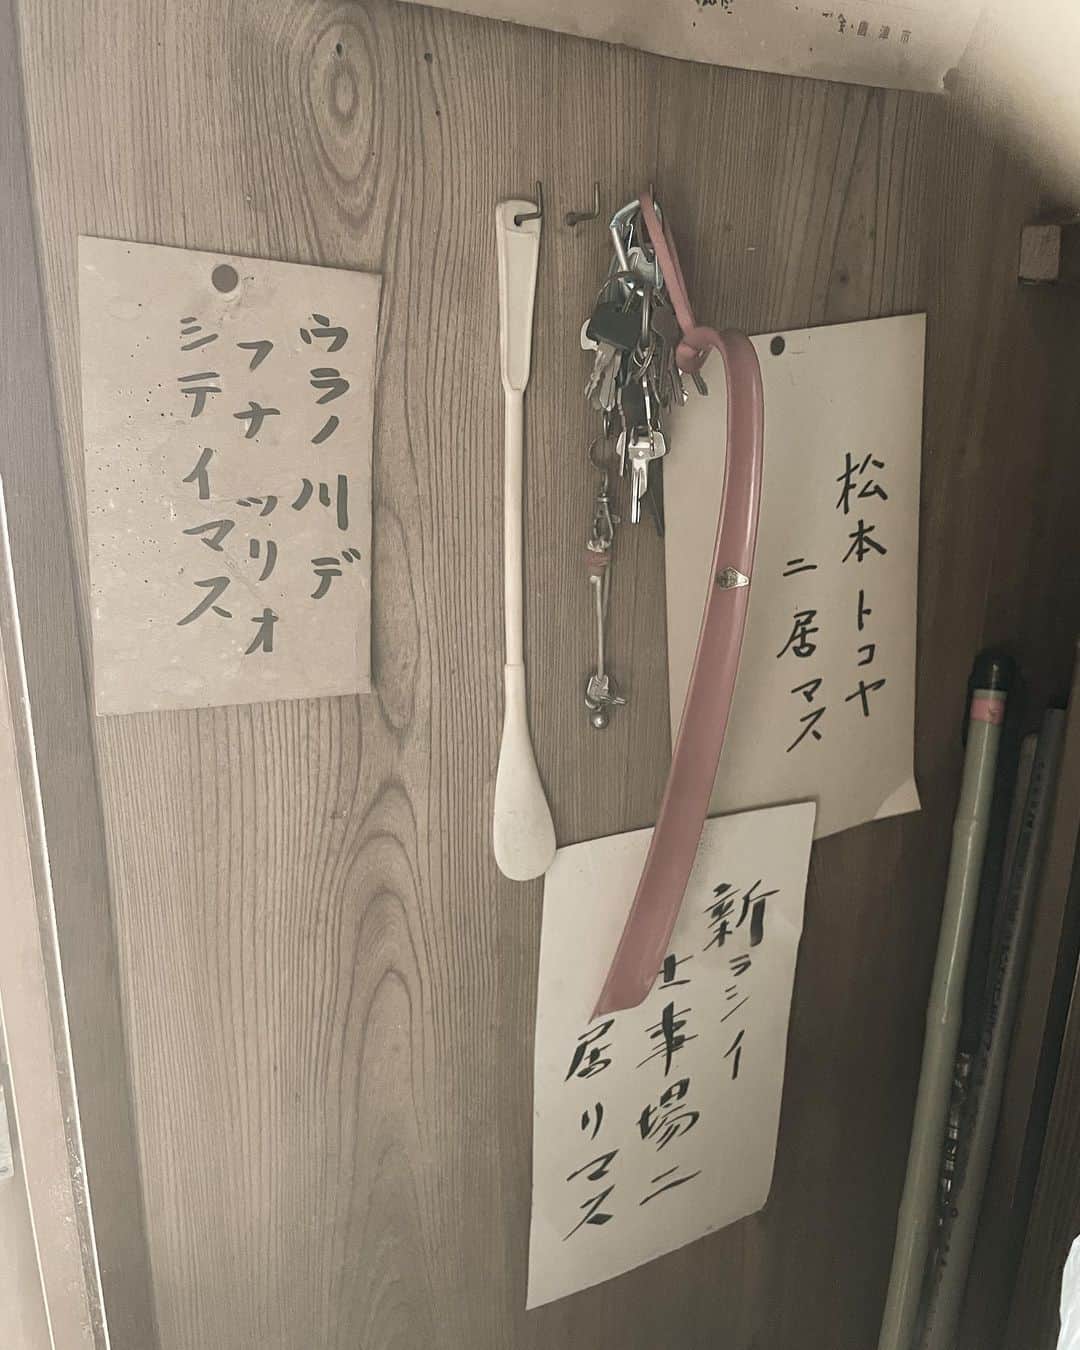 ウラノ川デ
フナヅリオ
シテイマス
松本トコヤ
ニ居マス
新ラシイ
士事場ニ
居リマス